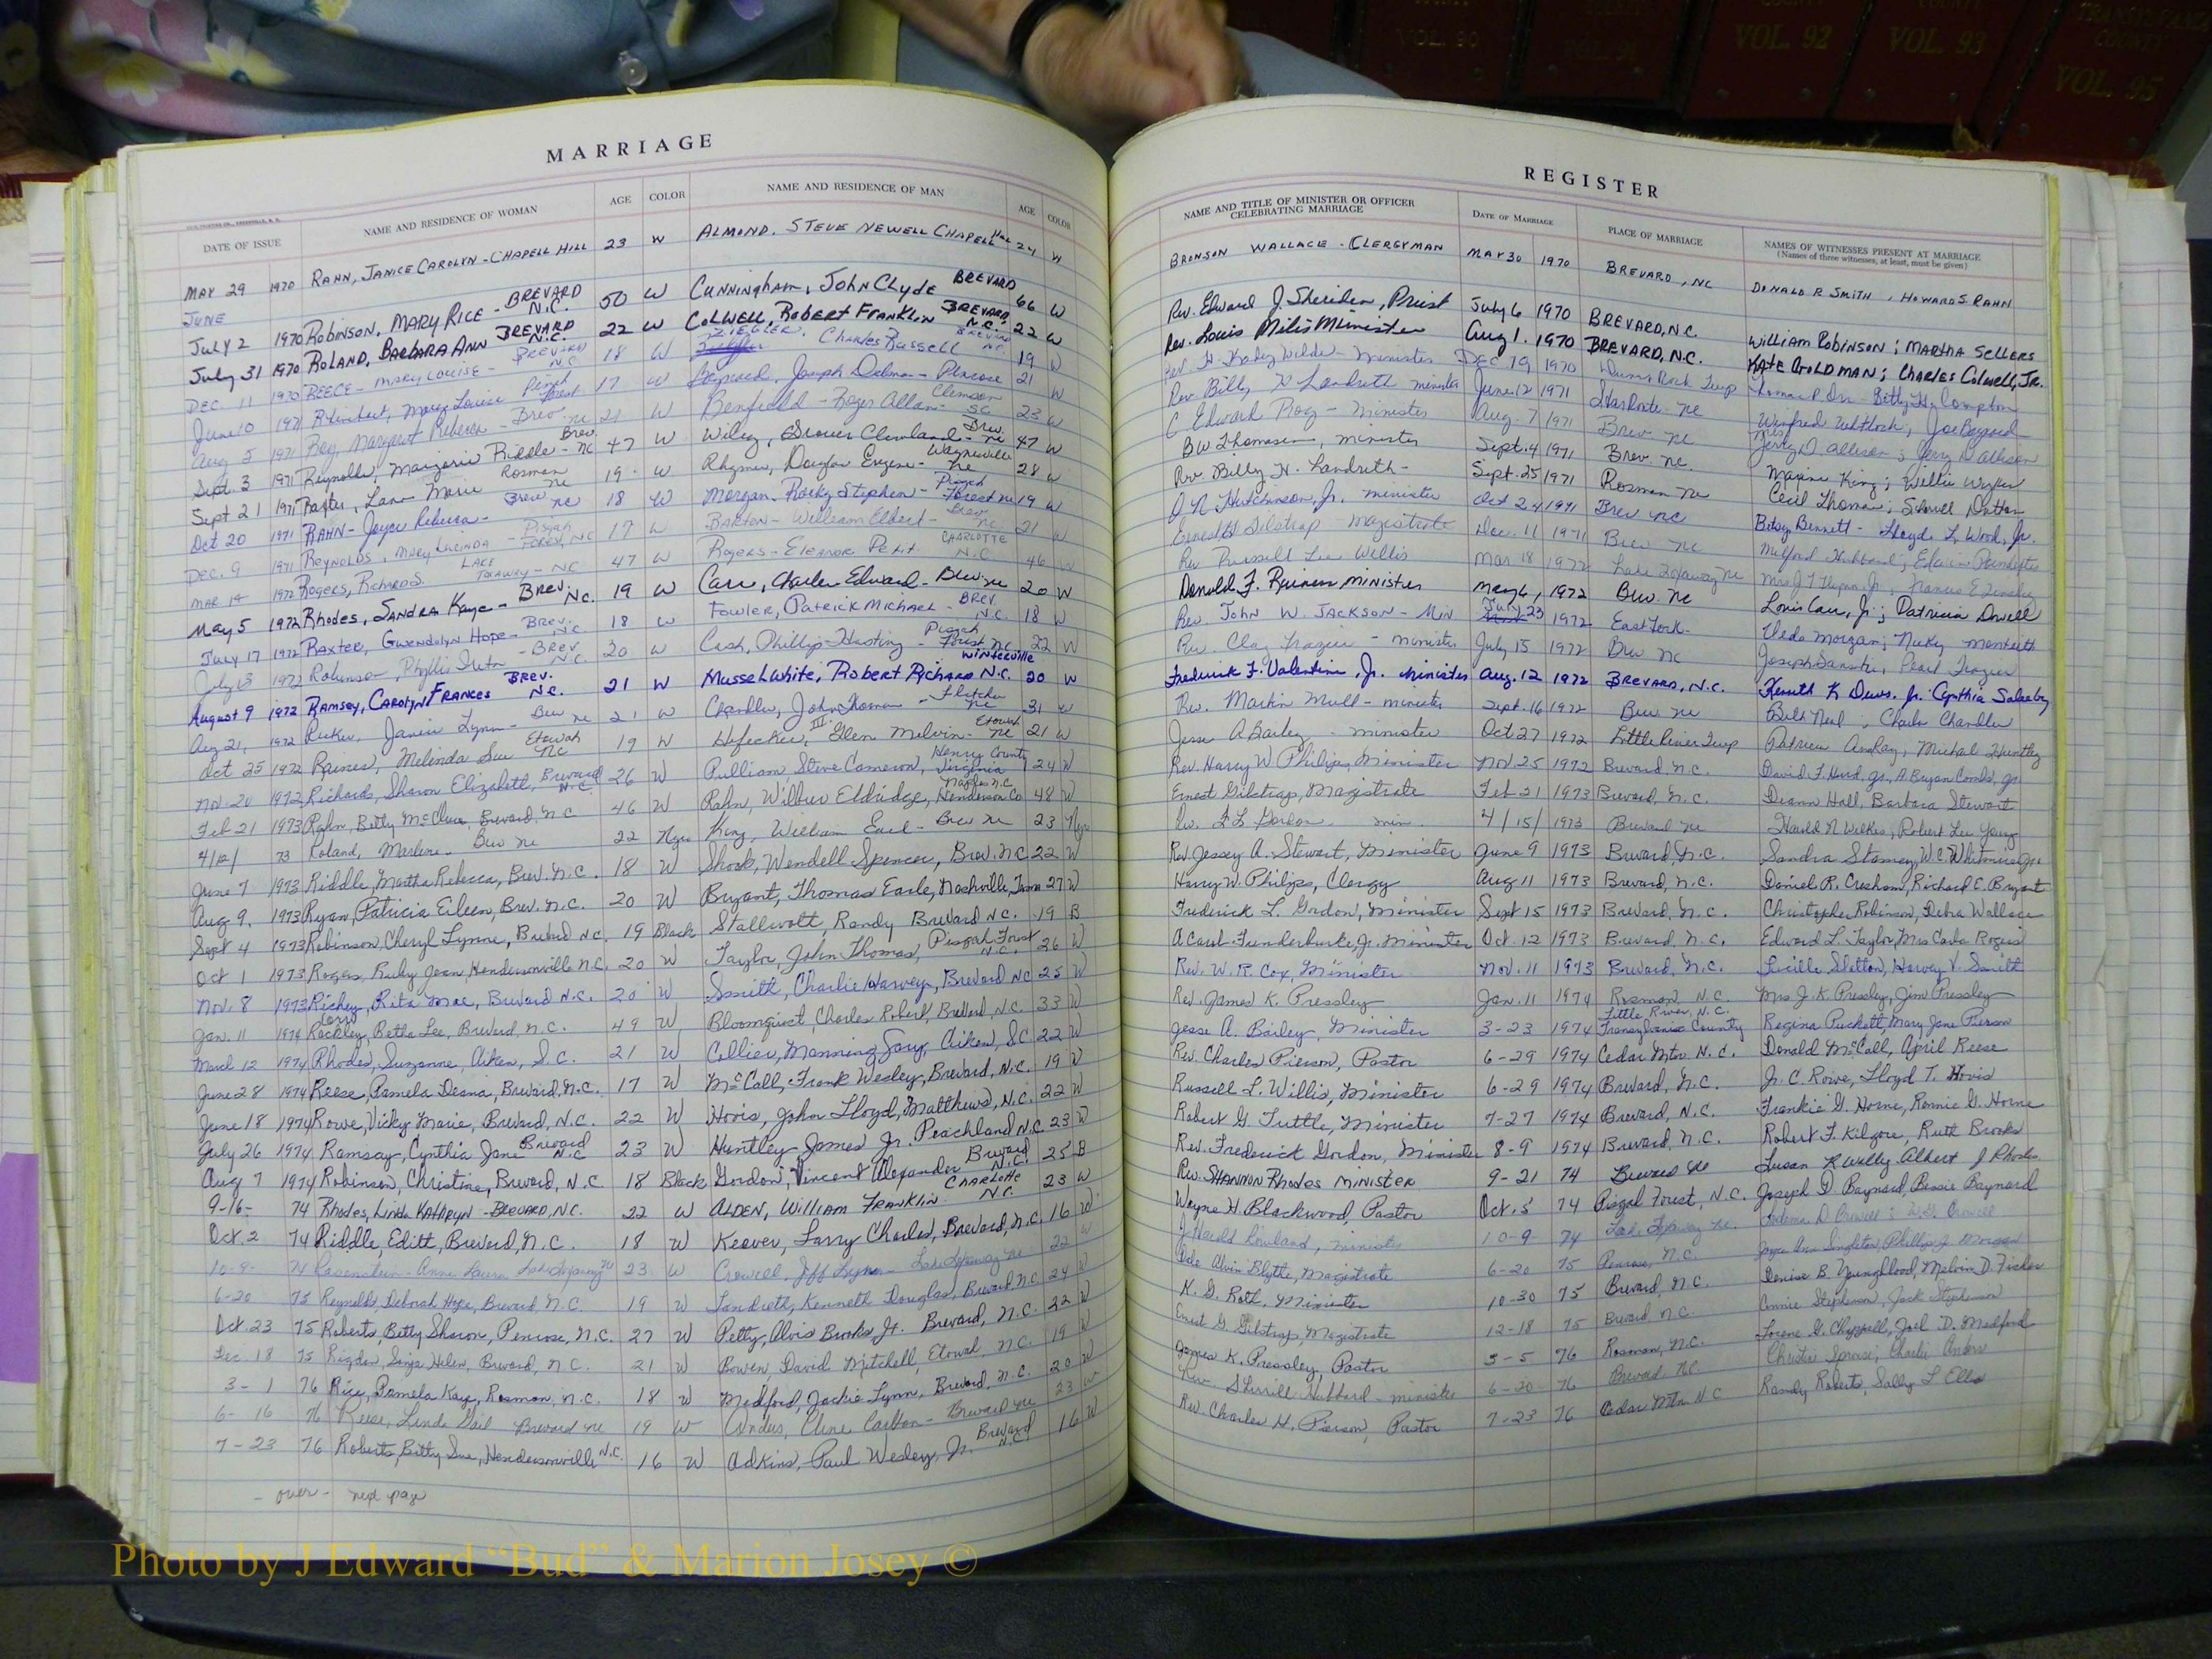 MARRIAGE
DATE OF ISSUE NAME AND RESIDENCE OF WOMAN AGE COLOR NAME AND RESIDENCE OF MAN AGE COLOR
MAY 29 1970 RAHN, JANICE CAROLYN - CHAPELL HILL 23 W ALMOND, STEVE NEWELL CHAPELL Hill 24 W
JUNE
July 2 1970 Robinson, MARY RICE - BREVARD N.C. 50 W Cunningham, John Clyde BREVARD 66 W
July 31 1970 ROLAND, BARBARA ANN BREVARD N.C. 22 W COLWELL, Robert Franklin BREVARD, N.C. 22 W
DEC 11 1970 REECE - MARY LOUISE - BREVARD N.C. 18 W ZIEGLER, Charles Russell BREVARD NC 19 W
June 10 1971 Rhinehart, Mary Louise Pisgah Forest 17 W Joseph Delma - Penrose 21 W
Aug 5 1971 Ray, Margaret Rebecca - Brev. nc 21 W Benfield - Roger Allan - Clemson SC 23 W
Sept. 3 1971 Reynolds, Marjorie Riddle - Brev. NC 47 W Wiley, Grover Cleveland - Brev. nc 47 W
Sept 21 1971 Rosman nc 19 W Rhymer, Douglas Eugene - Waynesville nc 28 W
Oct 20 1971 RAHN - Joyce Rebecca - Brev nc 18 W Morgan, Rocky Stephen - Pisgah Forest nc 19 W
DEC. 9 1971 REYNOLDS, MARY LUCINDA - PISGAH FOREST, NC 17 W BARTON - William Eldert - Brev. nc 21 W
MAR 14 1972 Rogers, Richard S. LAKE TOXAWAY - NC 47 W Rogers - Eleanor Pettit CHARLOTTE N.C. 46 W
May 5 1972 Rhodes, SANDRA Kaye - BREV. N.C. 19 W Carr, Charles Edward - Brev. nc 20 W
July 17 1972 Baxter, Gwendolyn Hope - Brev. N.C. 18 W Fowler, Patrick Michael - BREV. N.C. 18 W
July 13 1972 Robinson, Phyllis - BREV. N.C. 20 W Cash, Phillip Hasting - Pisgah Forest, nc. 22 W
August 9 1972 RAMSEY, CAROLYN FRANCES BREV. N.C. 21 W Musselwhite, Robert Richard Winterville N.C. 20 W
Aug 21, 1972 Janice Lynn - Brev nc 21 W Chandler, John Thomas III - Fletcher nc 31 W
Oct 25 1972 Raines, Melinda Sue Etowah NC 19 W Hefecker, Glen Melvin - Etowah nc 21 W
Nov. 20 1972 Richards, Sharon Elizabeth, Brevard N.C. 26 W Pulliam, Steve Cameron, Henry County Virginia 24 W
Feb 21 1973 Rahn, Betty McClure, Brevard, N.C 46 W Rahn, Wilbur Eldridge, Naples N.C. Henderson Co 48 W
4/12/ 73 Roland, Marlene - Brev nc 22 Negro King, William Earl - Brev nc 23 Negro
June 7 1973 Riddle, Martha Rebecca, Brev. N.C. 18 W Shook, Wendell Spencer, Brev. N.C 22 W
Aug 9, 1973 Ryan, Patricia Eileen, Brev. N.C. 20 W Bryant, Thomas Earle, Nashville, Tenn 27 W
Sept 4 1973 Robinson, Cheryl Lynne, Brevard N.C. 19 Black Stallwolt, Randy Brevard N.C. 19 B
Oct 1 1973 Rogers, Ruby Jean, Hendersonville N.C. 20 W Taylor, John Thomas, Pisgah Forest N.C. 26 W
Nov. 8 1973 Richey, Rita Mae, Brevard N.C. 20 W Smith, Charlie Harvey, Brevard NC 25 W
Jan. 11 1974 Rackley, Betha Lee, Brevard, N.C. 49 W Bloomquist, Charles Robert, Brevard, N.C. 33 W
March 12 1974 Rhodes, Suzanne, Aiken, S.C. 21 W Collier, Manning Gary, Aiken, SC 22 W
June 28 1974 Reese, Pamela Deana, Brevard, N.C. 17 W McCall, Frank Wesley, Brevard, N.C. 19 W
June 18 1974 Rowe, Vicky Marie, Brevard, N.C. 22 W Hovis, John Lloyd, Matthews, N.C. 22 W
July 26 1974 Ramsay, Cynthia Jane Brevard N.C 23 W Huntley James Jr. Peachland N.C. 23 W
Aug 7 1974 Robinson, Christine, Brevard, N.C 18 Black Gordon, Vincent Alexander Brevard N.C. 25 B
9-16- 74 Rhodes, Linda Kathryn - BREVARD, N.C. 22 W ALDEN, WILLIAM FRANKLIN CHARLOTTE N.C. 23 W
Oct. 2 74 Riddle, Editt, Brevard, N.C. 18 W Keever, Larry Charles, Brevard, N.C. 16 W
10-9- 74 Rosenstein - Anne Laura Lake Toxaway nc 23 W Crowell, Jeff Lake Toxaway nc 22 W
6-20 75 Reynolds, Deborah Hope, Brevard, N.C. 19 W Landreth, Kenneth Douglas, Brevard, N.C. 24 W
Oct. 23 75 Roberts, Betty Sharon, Penrose, N.C. 27 W Petty, Alvis Brooks Jr. Brevard, N.C. 22 W
Dec. 18 75 Rigdon, Helen, Brevard, N.C. 21 W Bowen, David Mitchell, Etowah, N.C. 19 W
3-1 76 Rice, Pamela Kay, Rosman, N.C. 18 W Medford, Jackie Lynn, Brevard, N.C. 20 W
6-16 76 Reese, Linda Gail Brevard nc 19 W Anders, Cline Carlton - Brevard nc 23 W
7-23 76 Roberts, Betty Sue, Hendersonville N.C. 16 W Adkins, Paul Wesley, Jr. Brevard N.C. 16 W
- over - next page
REGISTER
NAME AND TITLE OF MINISTER OR OFFICER CELEBRATING MARRIAGE DATE OF MARRIAGE PLACE OF MARRIAGE NAMES OF WITNESSES PRESENT AT MARRIAGE
(Names of three witnesses, at least, must be given)
BRONSON WALLACE - CLERGYMAN MAY 30 1970 BREVARD, NC DONALD R SMITH, HOWARD S RAHN
Rev. Edward J. Sheridan, Priest July 6 1970 BREVARD, N.C. William Robinson; MARTHA SELLERS
Rev. Louis Milis Minister Aug 1. 1970 BREVARD, N.C. KATE GOLDMAN; Charles Colwell, Jr.
Minister DEC 19 1970 Betty H. Compton
Rev. Billy H Landreth minister June 12 1971 Star Route - nc Winfred Whitlock; Joe Baynard
C Edward - Minister Aug. 7 1971 Brev nc Jerry D Allison; Jerry D Allison
BW Thomason, minister Sept. 4 1971 Brev. nc. Maxine King; Willie
Rev Billy H. Landreth - Sept. 25 1971 Rosman nc Cecil Thomas;
Hutchinson, Jr. minister Oct 24 1971 Brev nc Betsy Bennett - Floyd L. Wood, Jr.
Ernest G Gilstrap Magistrate Dec. 11 1971 Brev nc
Rev Russell Lee Willis Mar 18 1972 Lake Toxaway nc
Donald F. Rainess Minister May 6, 1972 Brev. nc Louis Carr, Jr; Patricia Dowell
Rev. John W. JACKSON - Min July 23 1972 East Fork - Morgan;
Rev. Clay Frazier - minister July 15 1972 Brev NC Pearl Frazier
Frederick F. Valentine, Jr. Minister Aug. 12 1972 BREVARD, N.C. Kenneth K Dews. Jr. Cynthia
Rev. Martin Mull - minister Sept. 16 1972 Brev nc Charles Chandler
Jesse A Bailey - minister Oct 27 1972 Little River Twp Patricia Michael Huntley
Rev. Harry W Philips, Minister Nov. 25 1972 Brevard, N.C. David F. Hurd, Jr., A. Bryan Combs, Jr.
Ernest Gilstrap, Magistrate Feb 21 1973 Brevard, N.C. Diann Hall, Barbara Stewart
Rev. F L Gordon min. 4/15/ 1973 Brevard nc Harold N Wilkes, Robert Lee Young
Rev. Jessey A. Stewart, Minister June 9 1973 Brevard, N.C. Sandra Stamey, W.C. Whitmire Jr.
Harry W. Philips, Clergy Aug 11 1973 Brevard, N.C. Daniel R. Cresham, Richard E. Bryant
Frederick L. Gordon, Minister Sept 15 1973 Brevard, N.C. Christopher Robinson, Debra Wallace
A Carol Funderburke, Jr. Minister Oct. 12 1973 Brevard, N.C. Edward L. Taylor, Mrs Carla Rogers
Rev. W. R. Cox, Minister Nov. 11 1973 Brevard, N.C. Lucille Slatton, Harvey V. Smith
Rev. James K. Pressley Jan. 11 1974 Rosman, N.C. Mrs J. K. Pressley, Jim Pressley
Jesse A. Bailey, Minister 3-23 1974 Little River, N.C. Transylvania County Regina Puckett, Mary Jane Pierson
Rev. Charles Pierson, Pastor 6-29 1974 Cedar Mtn. N.C. Donald McCall, April Reese
Russell L. Willis, Minister 6-29 1974 Brevard, N.C. Jr. C. Rowe, Lloyd T. Hovis
Robert G Tuttle, Minister 7-27 1974 Brevard, N.C. Frankie G. Horne, Ronnie G. Horne
Rev. Frederick Gordon, Minister 8-9 1974 Brevard, N.C. Robert F. Kilgore, Ruth Brooks
Rev. SHANNON Rhodes MINISTER 9-21 74 Brevard nc Susan R Wally Albert J Rhodes
Wayne H. Blackwood, Pastor Oct. 5 74 Pisgah Forest, N.C. Joseph D. Baynard, Bessie Baynard
J Harold minister 10-9 74 Lake Toxaway nc. Crowell
Dale Alvin Blythe, Magistrate 6-20 75 Penrose, N.C. Joyce Ann Singleton, Phillip J. Morgan
K. D. Roth, Minister 10-30 75 Brevard, N.C. Denise B. Youngblood, Melvin D. Fisher
Ernest G. Gilstrap, Magistrate 12-18 75 Brevard N.C. Connie Stephenson, Jack Stephenson
James K. Pressley Pastor 3-5 76 Rosman, N.C. Lorene G. Chappell, Joel D. Medford
Rev. Sherrill Hubbard - minister 6-20 76 Brevard NC. Christie Sprouse; Charlie Anders
Rev. Charles H. Pierson, Pastor 7-23 76 Cedar Mtn. N.C Randy Roberts, Sally L Ellis
VOL. 90
VOL. 91
VOL. 92
VOL. 93
VOL. 95
Photo by J Edward “Bud” & Marion Josey ©